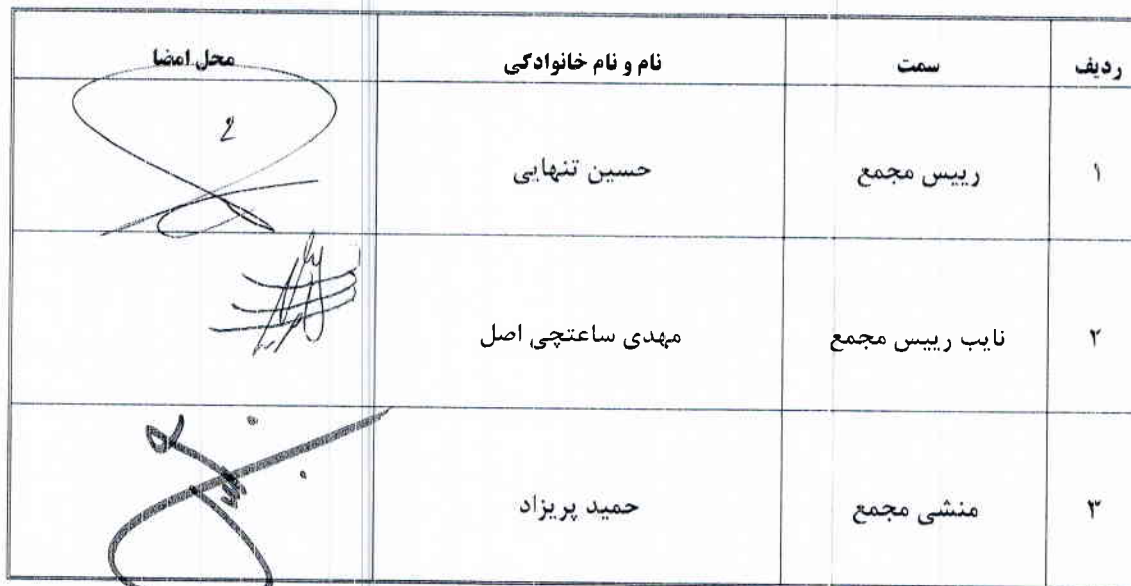 ردیف سمت نام و نام خانوادگی محل امضا
۱ رییس مجمع حسین تنهایی
۲ نایب رییس مجمع مهدی ساعتچی اصل
۳ منشی مجمع حمید پریزاد